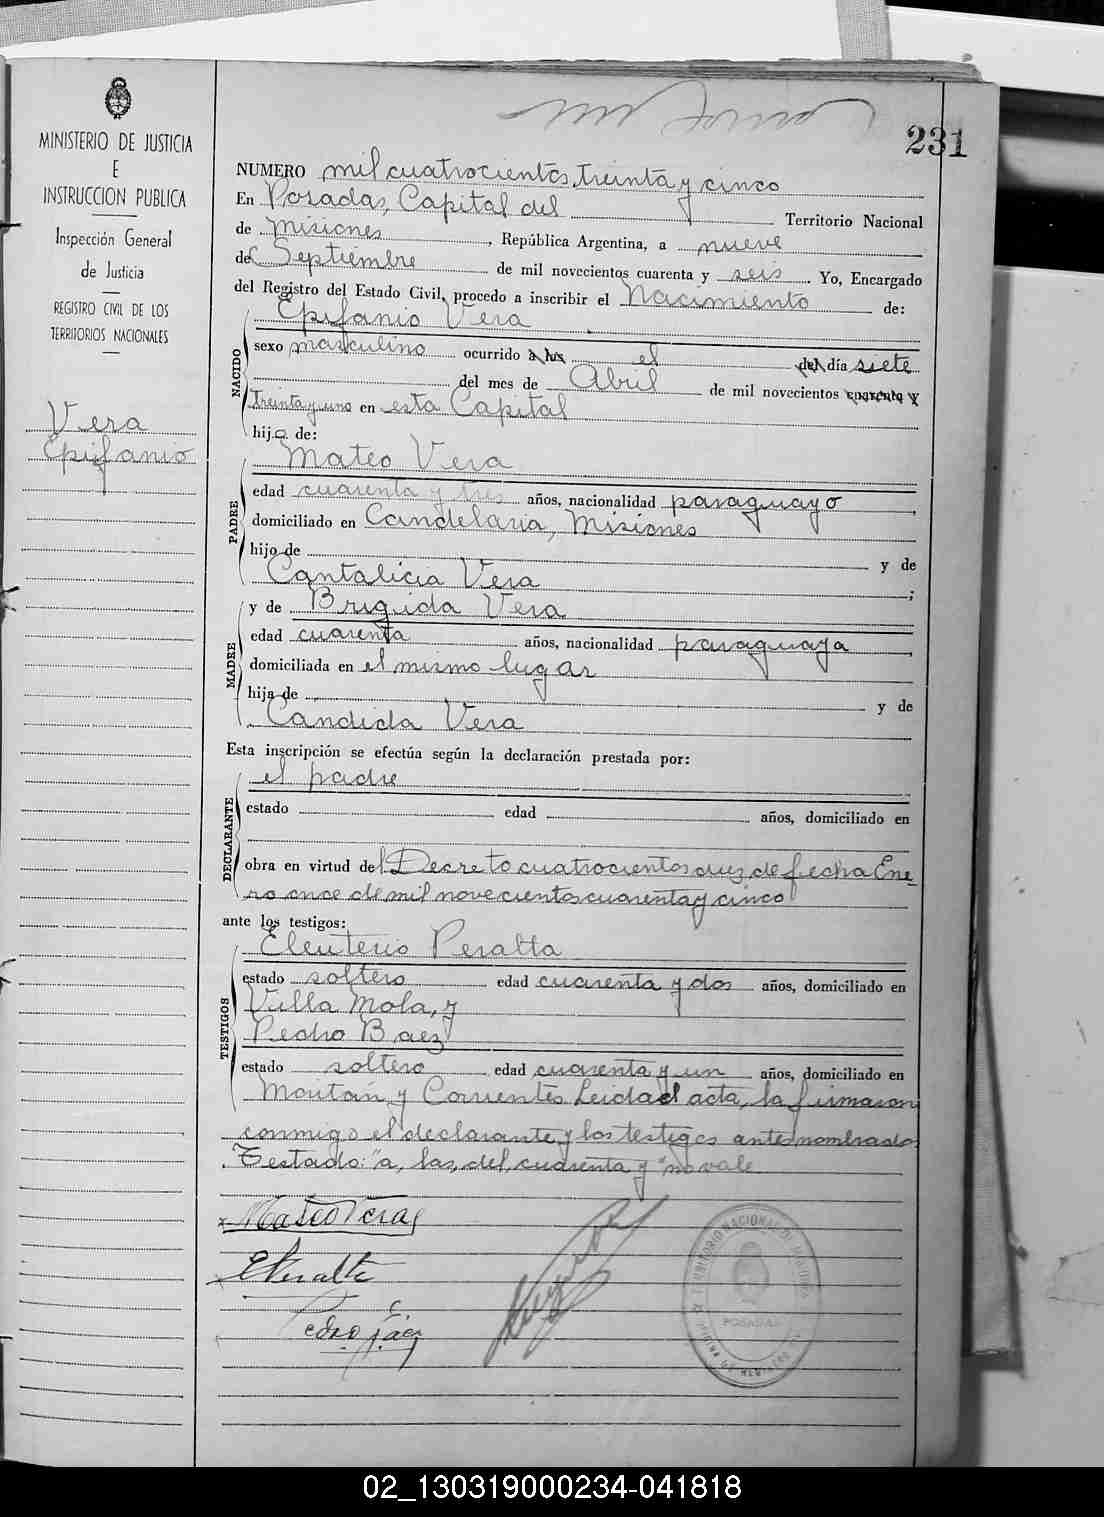 231
MINISTERIO DE JUSTICIA
E
INSTRUCCION PUBLICA
Inspección General
de Justicia
REGISTRO CIVIL DE LOS
TERRITORIOS NACIONALES
Vera
Epifanio
NUMERO mil cuatrocientos, treinta y cinco
En Posadas, Capital del Territorio Nacional
de Misiones, República Argentina, a nueve
de Septiembre de mil novecientos cuarenta y seis. Yo, Encargado
del Registro del Estado Civil, procedo a inscribir el Nacimiento de:
NACIDO
Epifanio Vera
sexo masculino ocurrido a las el del día siete
del mes de Abril de mil novecientos cuarenta y
treinta y uno en esta Capital
hijo de:
PADRE
Mateo Vera
edad cuarenta y tres años, nacionalidad paraguayo
domiciliado en Candelaria, Misiones
hijo de y de
Cantalicia Vera ;
MADRE
y de Brigida Vera
edad cuarenta años, nacionalidad paraguaya
domiciliada en el mismo lugar
hija de y de
Candida Vera
Esta inscripción se efectúa según la declaración prestada por:
DECLARANTE
el padre
estado edad años, domiciliado en
obra en virtud del Decreto cuatrocientos diez de fecha Ene-
ro once de mil novecientos cuarenta y cinco
ante los testigos:
TESTIGOS
Eleuterio Peralta
estado soltero edad cuarenta y dos años, domiciliado en
Villa Mola, y
Pedro Baez
estado soltero edad cuarenta y un años, domiciliado en
y Corrientes Leida el acta, la firmaron
conmigo el declarante y los testigos antes nombrados
Testado: "a, las, del, cuarenta y" no vale.
Mateo Vera
E Peralta
Pedro Báez
TERRITORIO NACIONAL DE MISIONES
POSADAS
02_130319000234-041818